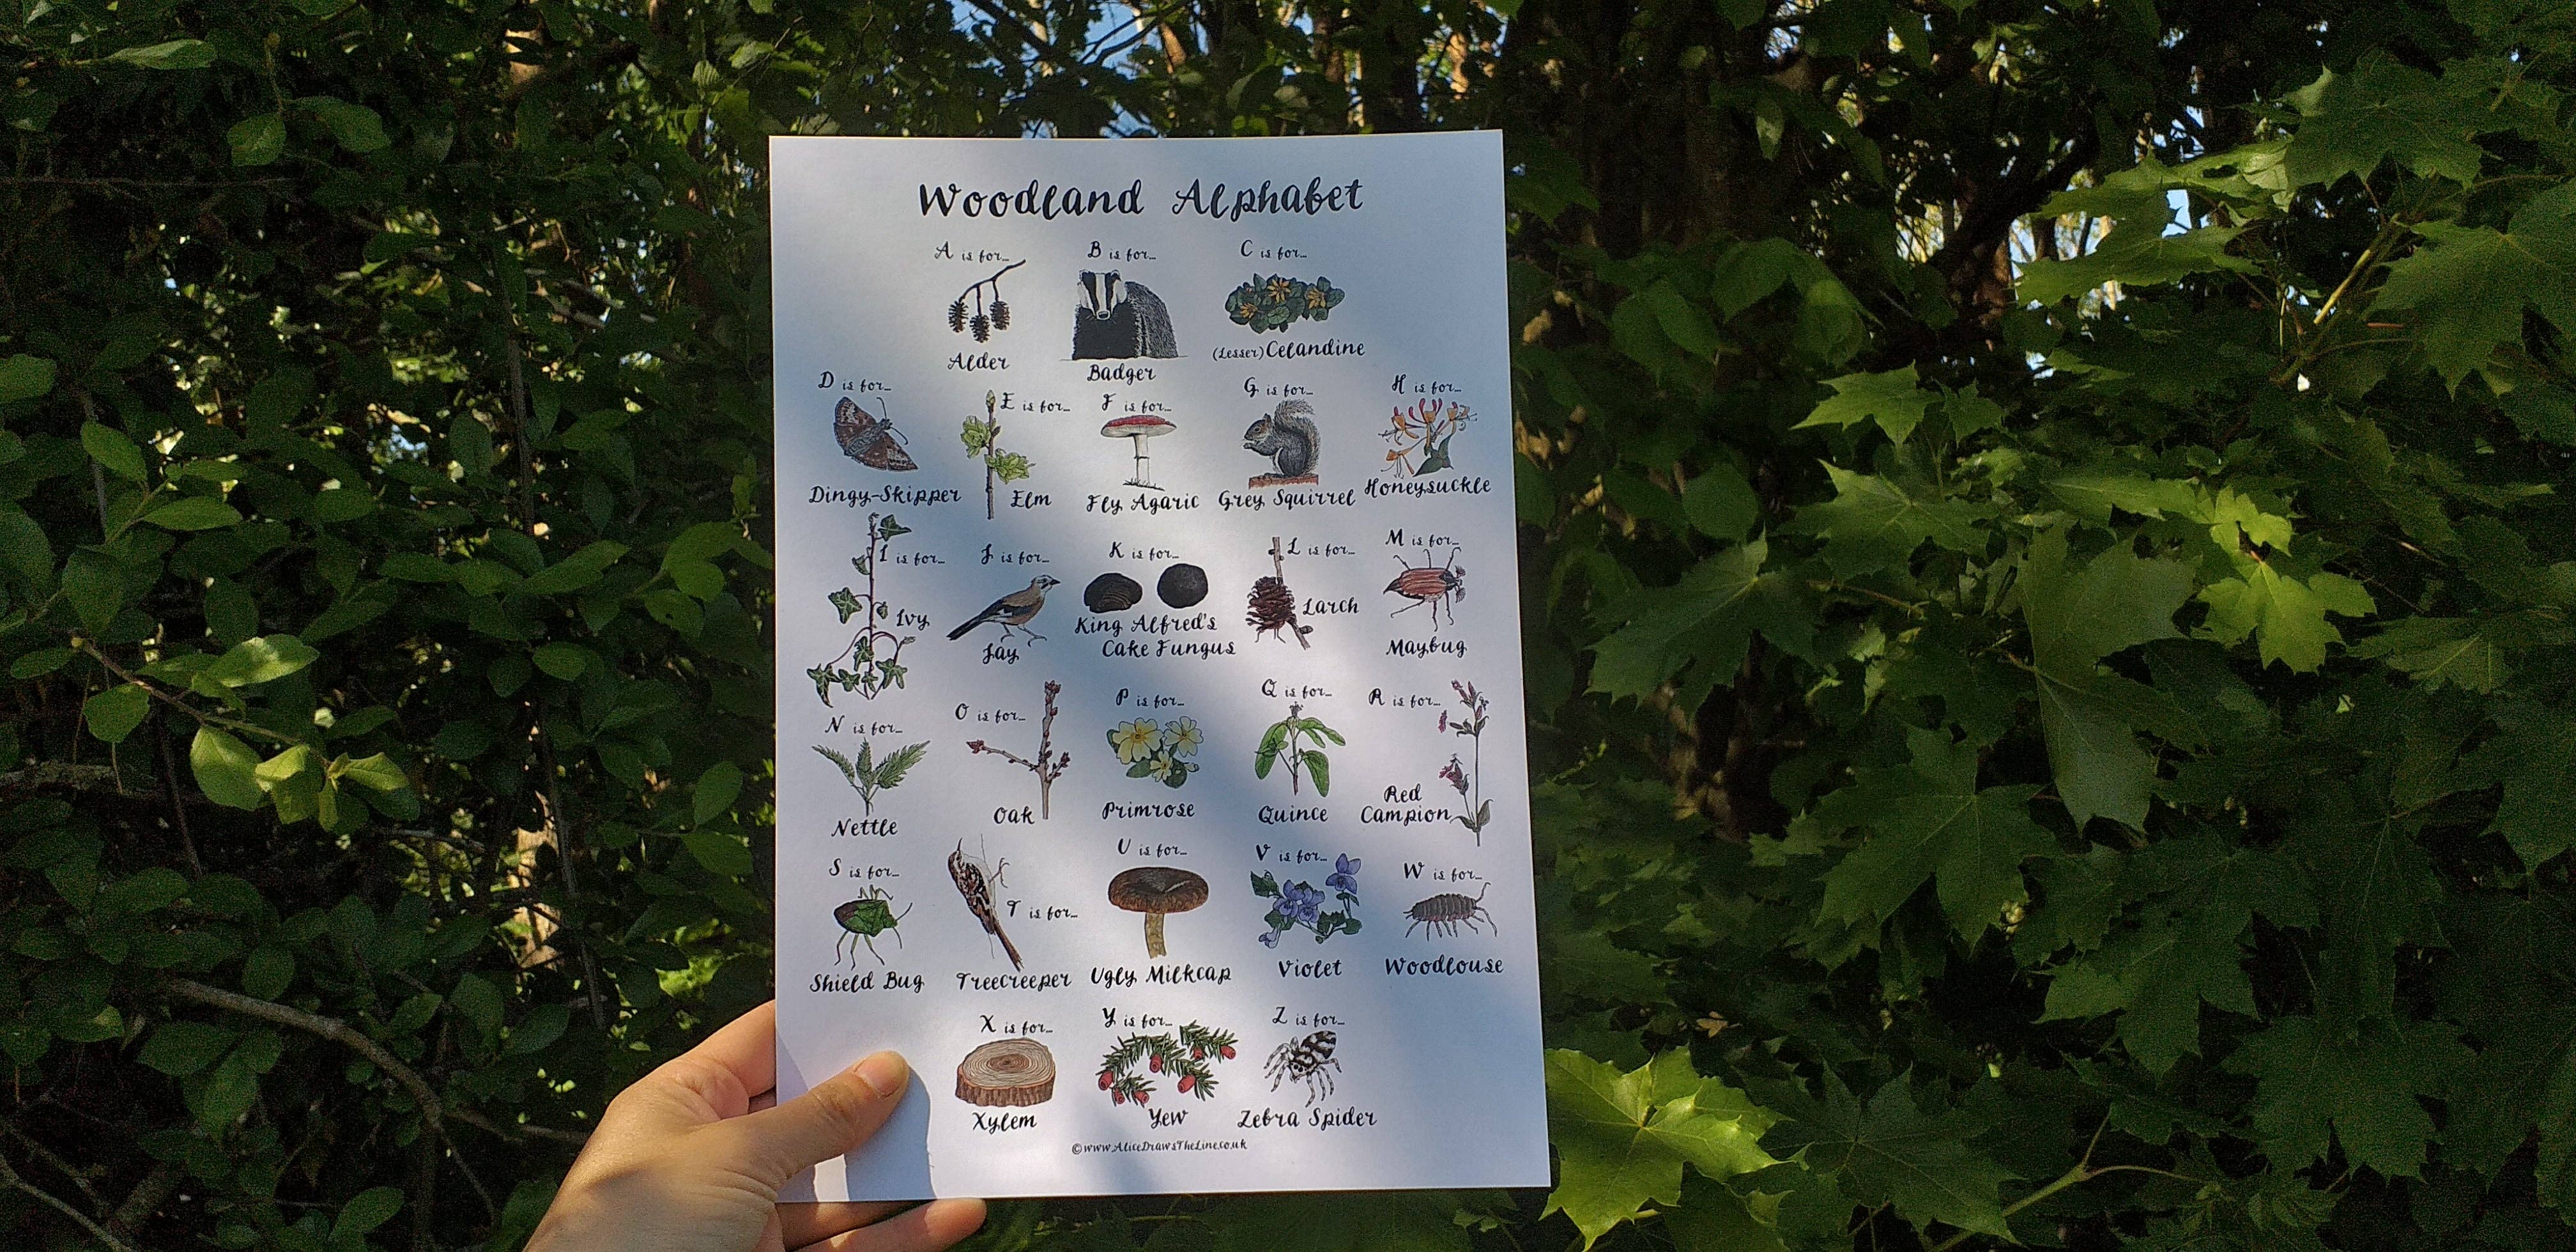 Woodland Alphabet
A is for...
Alder
B is for...
Badger
C is for...
(Lesser) Celandine
D is for...
Dingy-Skipper
E is for...
Elm
F is for...
Fly Agaric
G is for...
Grey Squirrel
H is for...
Honeysuckle
I is for...
Ivy
J is for...
Jay
K is for...
King Alfred's
Cake Fungus
L is for...
Larch
M is for...
Maybug
N is for...
Nettle
O is for...
Oak
P is for...
Primrose
Q is for...
Quince
R is for...
Red
Campion
S is for...
Shield Bug
T is for...
Treecreeper
U is for...
Ugly Milkcap
V is for...
Violet
W is for...
Woodlouse
X is for...
Xylem
Y is for...
Yew
Z is for...
Zebra Spider
©www.AliceDrawsTheLine.co.uk